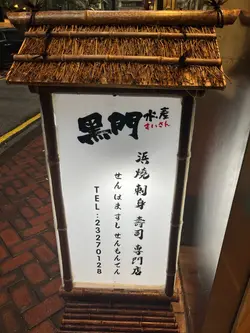 黑門水産
すいさん
浜燒 刺身 寿司 専門店
せん はま すし せんもんてん
TEL:23270128